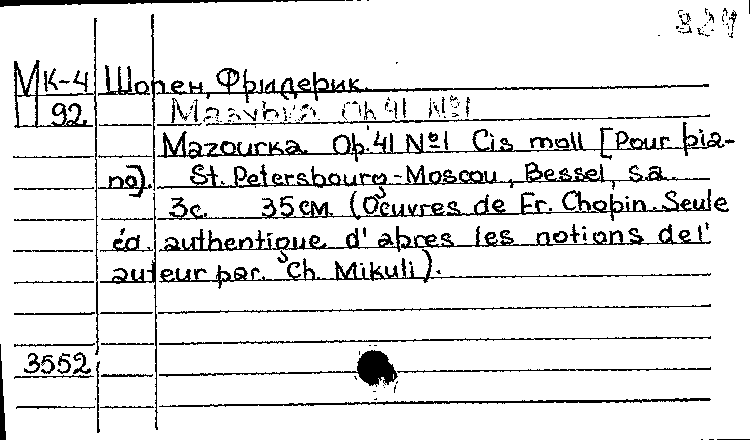 МК-4 Шопен, Фридерик.
92 Мазурка Op. 41 №1
Mazourka Op. 41 №1 Cis moll [Pour pia-
no). St. Petersbourg-Moscou, Bessel, s.a.
3с. 35см. (Oeuvres de Fr. Chopin. Seule
éd. authentique d'apres les notions de l'
auteur par. Ch. Mikuli).
3552